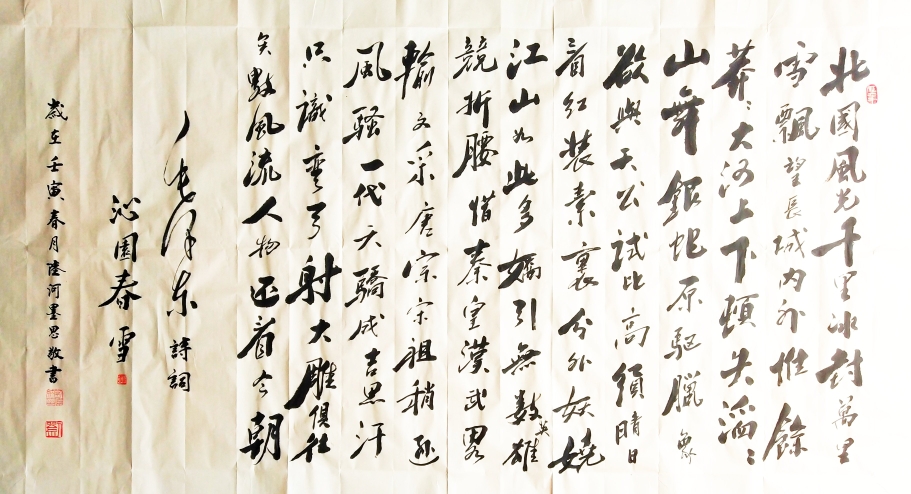 北國風光千里冰封萬里
雪飄望長城内外惟餘
莽〻大河上下頓失滔〻
山舞銀蛇原驱臘象
欲與天公試比高須晴日
看紅装素裹分外妖嬈
江山如此多嬌引無數英雄
競折腰惜秦皇漢武略
輸文采唐宗宋祖稍逊
風騷一代天驕成吉思汗
只識彎弓射大雕俱往
矣數風流人物还看今朝
毛泽东詩詞
沁園春雪
歲在壬寅春月陸河墨思敬書